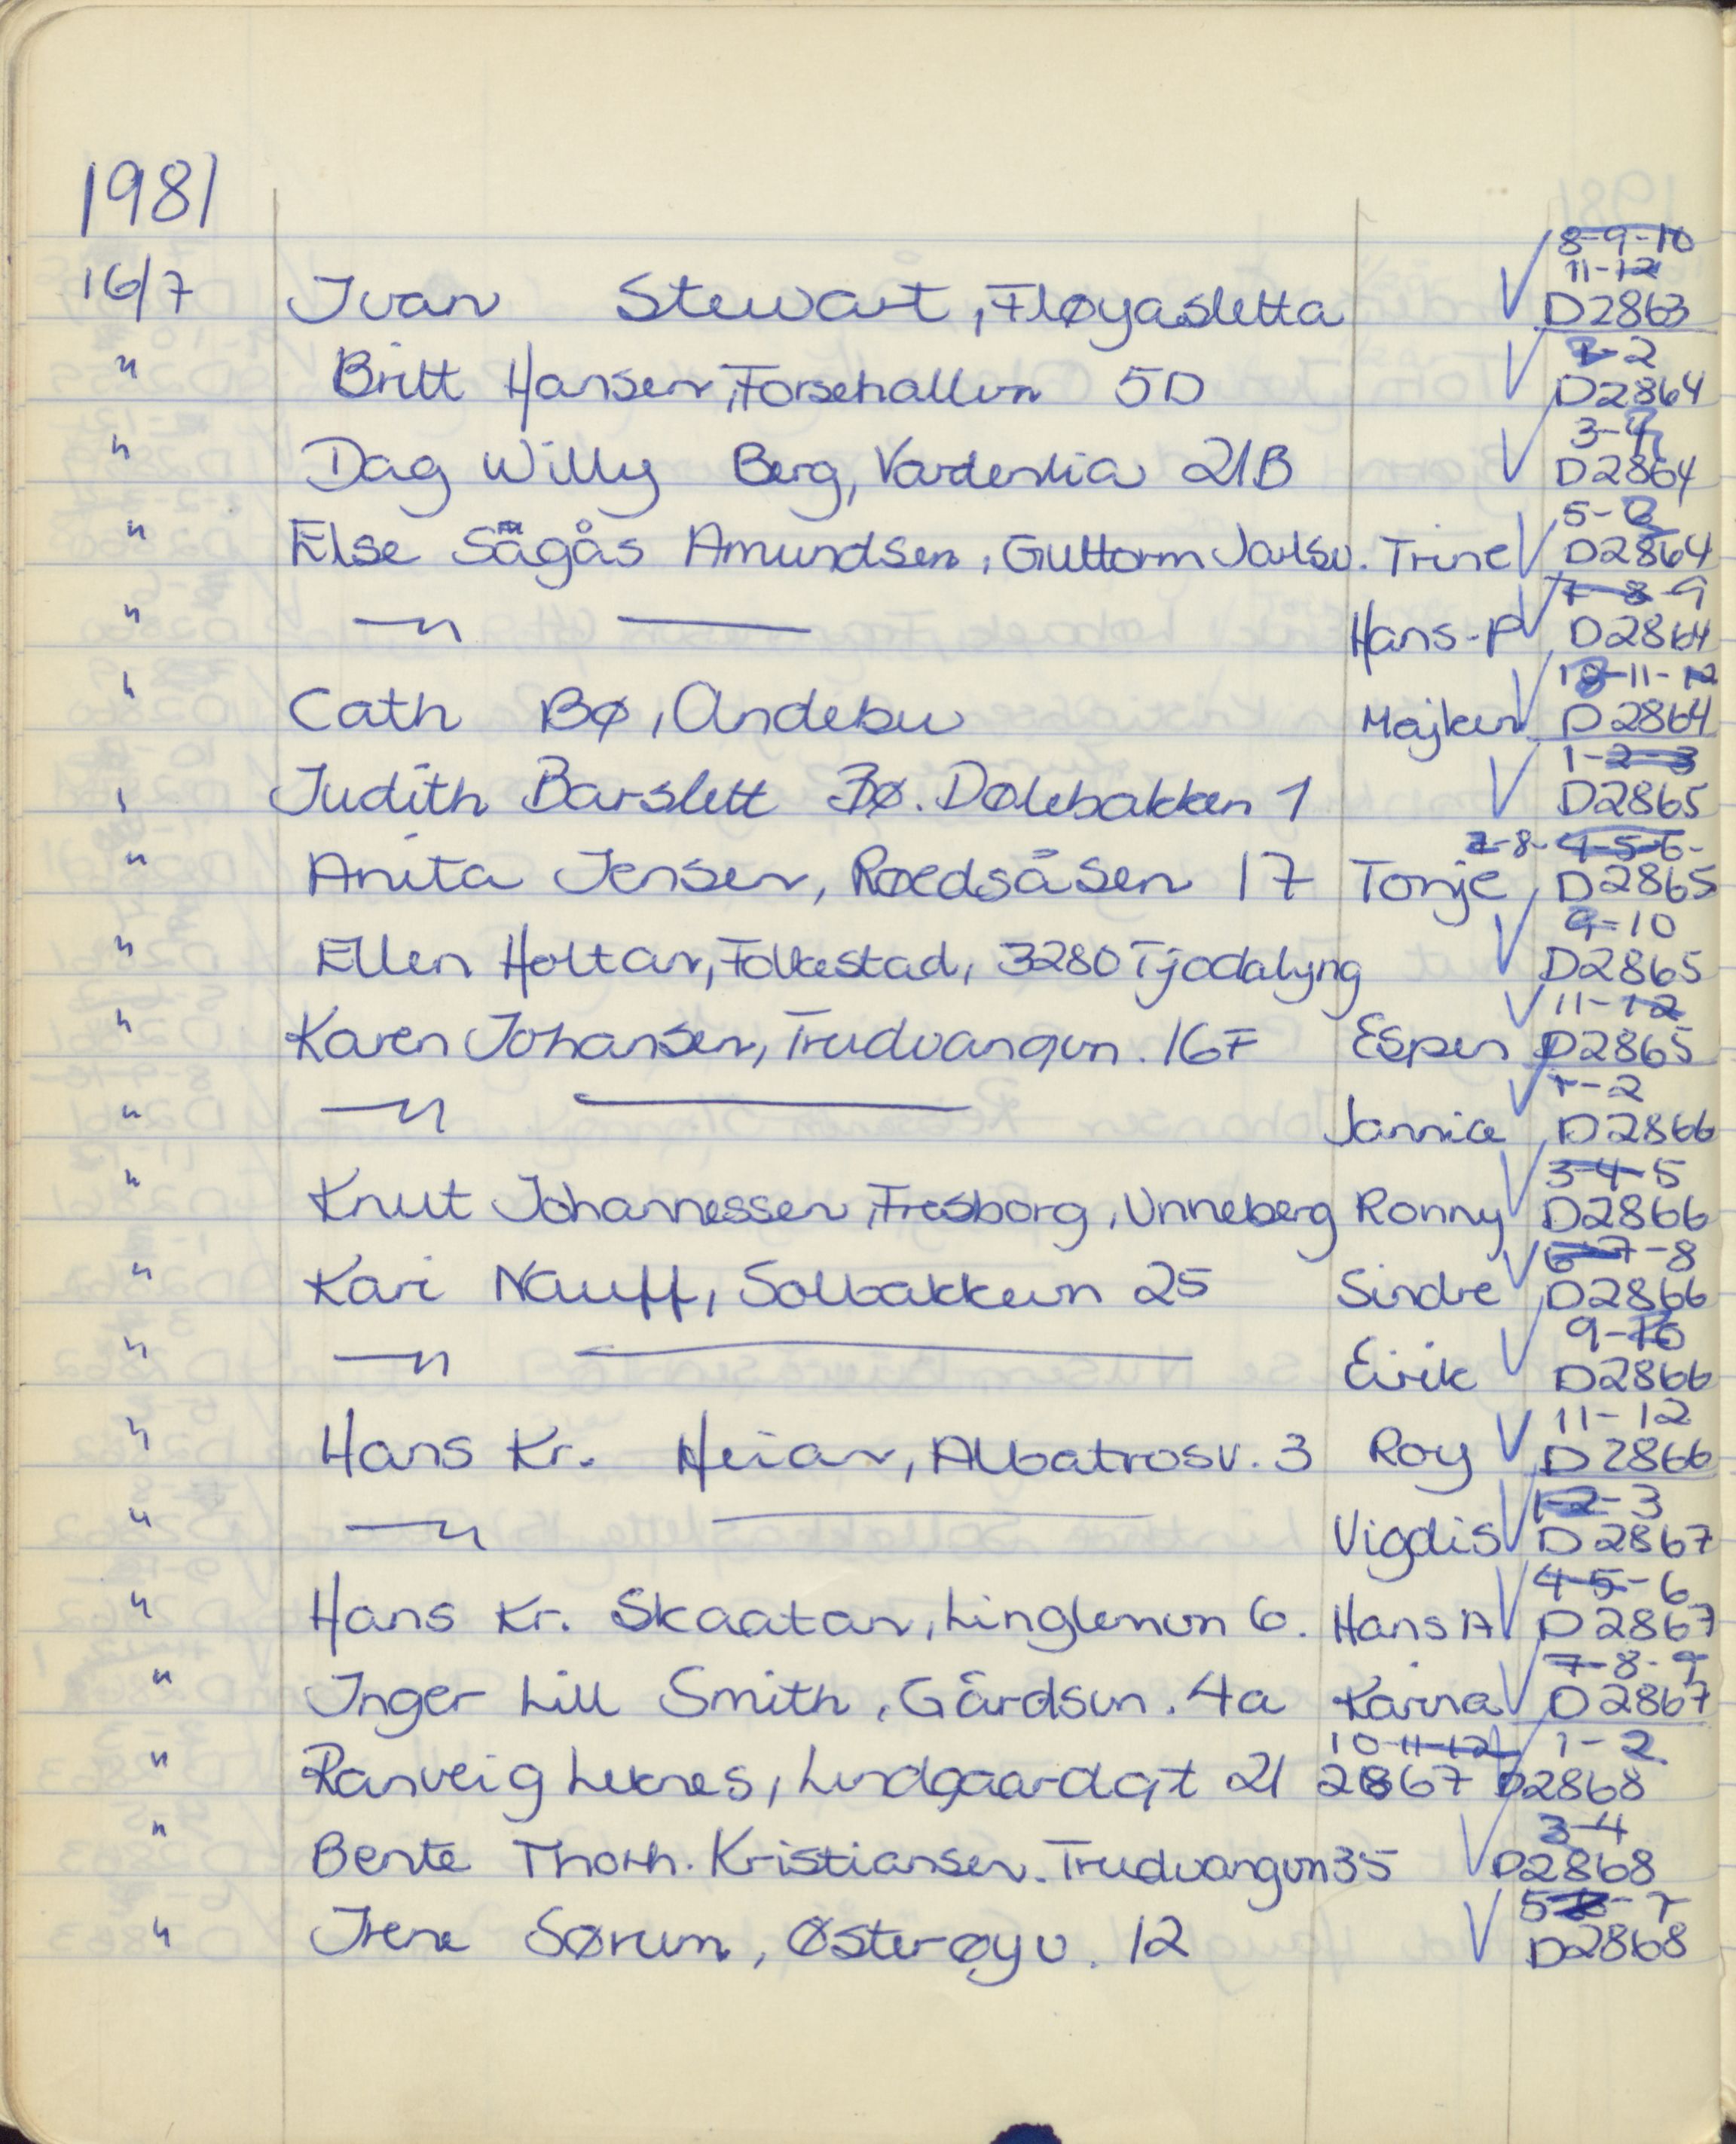 1981
8-9-10
11-12
16/7 Ivan Stewart, Fløyasletta ✓ D2863
1-2
" Britt Hansen, Forsehallvn 5D ✓ D2864
3-4
" Dag Willy Berg, Vardenlia 21B ✓ D2864
5-6
" Else Sågås Amundsen, Guttorm Jarlsv. Trine ✓ D2864
7-8-9
" —"— Hans-P ✓ D2864
10-11-12
" Cath Bø, Andebu Majken ✓ D2864
1-2-3
" Judith Barslett Bø. Dølebakken 1 ✓ D2865
7-8-4-5-6-
" Anita Jensen, Roedsåsen 17 Tonje D2865
9-10
" Ellen Holtar, Folkestad, 3280 Tjodalyng ✓ D2865
11-12
" Karen Johansen, Trudvangvn. 16F Espen ✓ D2865
1-2
" —"— Jannice ✓ D2866
3-4-5
" Knut Johannessen, Fresborg, Unneberg Ronny ✓ D2866
6-7-8
" Kari Nauff, Solbakkevn 25 Sindre ✓ D2866
9-10
" —"— Eirik ✓ D2866
11-12
" Hans Kr. Heian, Albatrosv. 3 Roy ✓ D2866
1-2-3
" —"— Vigdis ✓ D2867
4-5-6
" Hans Kr. Skaatan, Linglemvn 6. Hans A ✓ D2867
7-8-9
" Inger Lill Smith, Gårdsvn. 4a Karina ✓ D2867
10-11-12 1-2
" Ranveig Leknes, Lindgaardgt 21 2867 ✓ D2868
3-4
" Bente Thorh. Kristiansen. Trudvangvn 35 ✓ D2868
5-6-7
" Irene Sørum, Østerøyv. 12 ✓ D2868